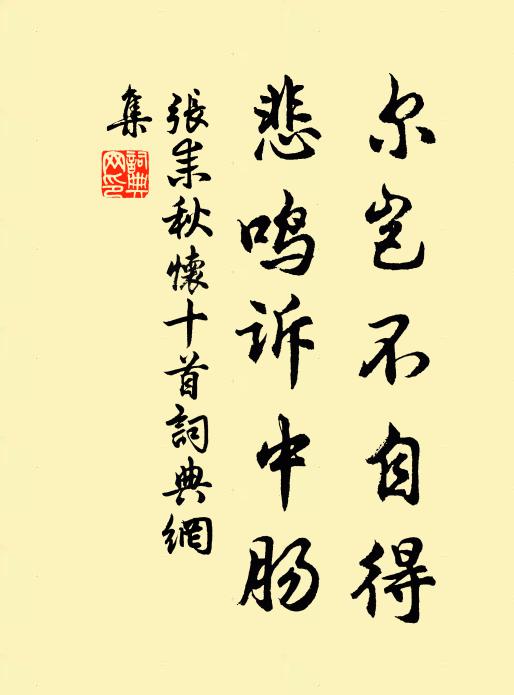 尔岂不自得
悲鸣诉中肠
張耒秋懷十首詞典網
集
詞典网印